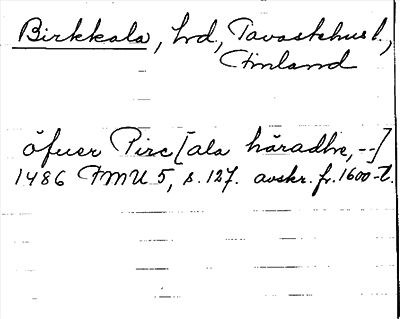 Birkkala, hd, Tavastehus l.,
Finland
öfuer Pirc[ala häradhe, --]
1486 FMU 5, s. 127. avskr. fr. 1600-t.